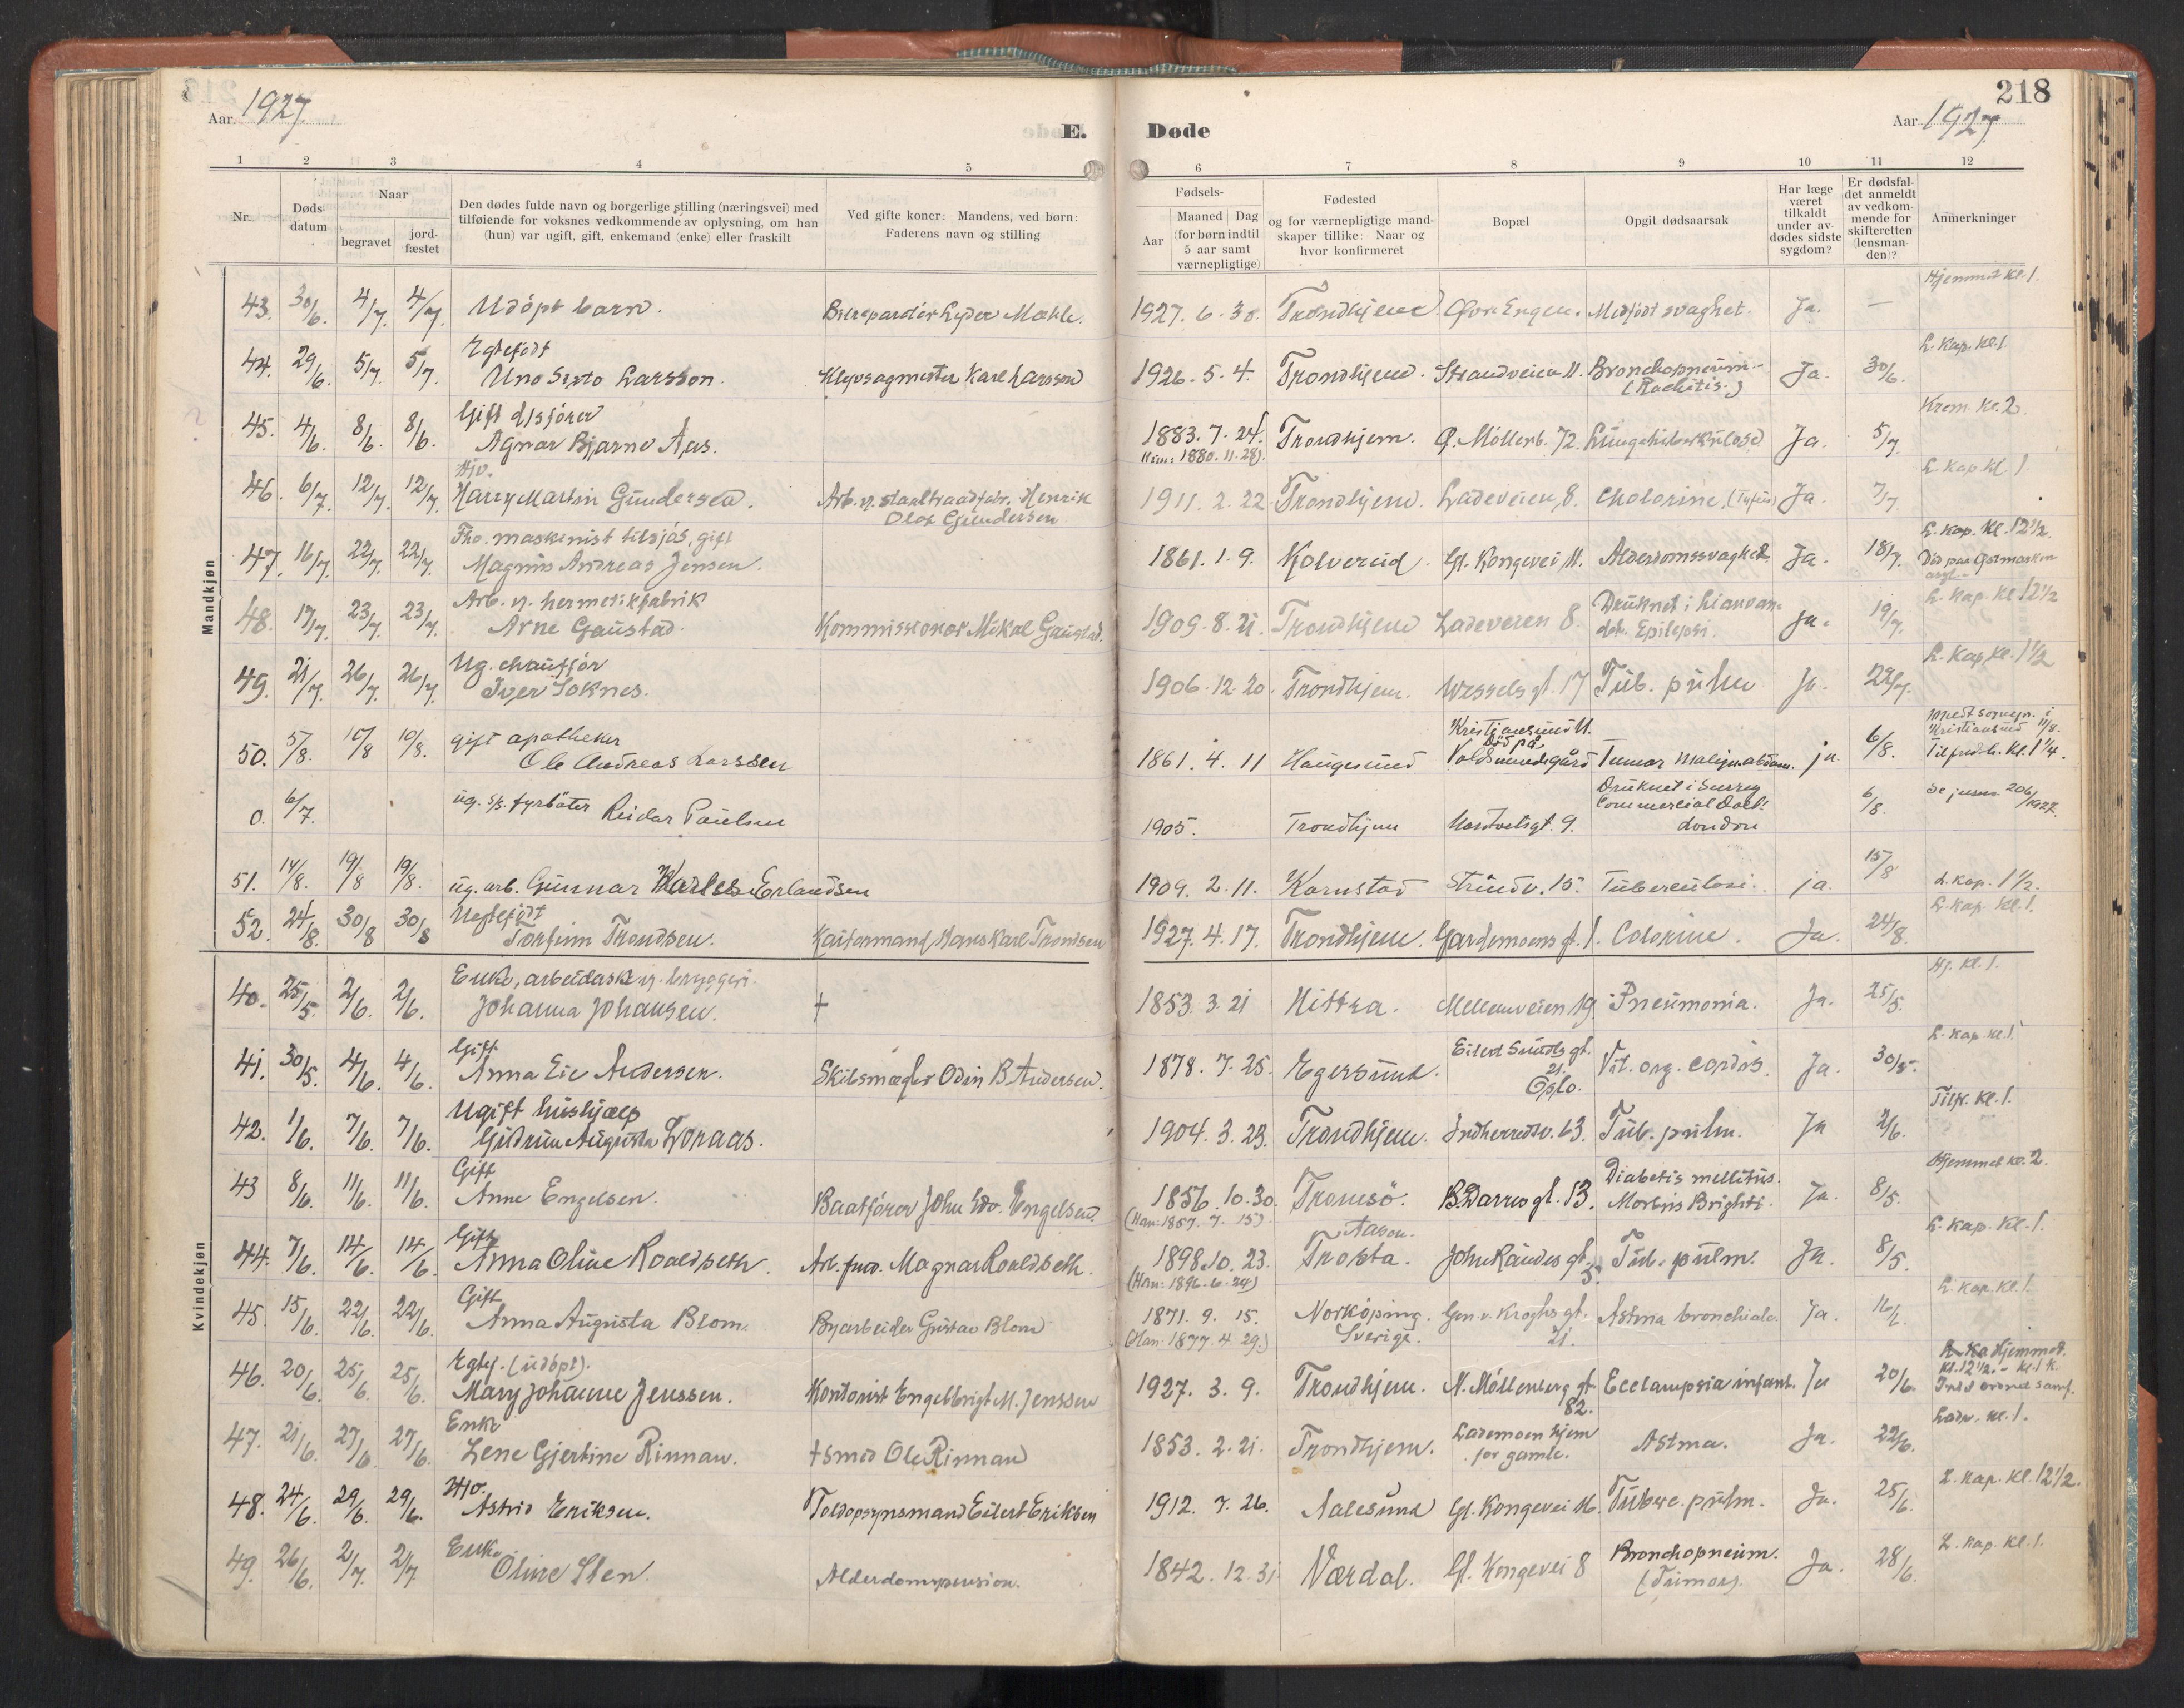 218
Aar 1927. E. Døde Aar 1927
1 2 3 4 5 6 7 8 9 10 11 12
Nr. Døds-datum Naar begravet jord-fæstet
Den dødes fulde navn og borgerlige stilling (næringsvei) med
tilføiende for voksnes vedkommende av oplysning, om han
(hun) var ugift, gift, enkemand (enke) eller fraskilt
Ved gifte koner: Mandens, ved børn:
Faderens navn og stilling
Fødsels-
Aar Maaned Dag
(for børn indtil
5 aar samt
værnepligtige)
Fødested
og for værnepligtige mand-
skaper tillike: Naar og
hvor konfirmeret
Bopæl
Opgit dødsaarsak
Har læge
været
tilkaldt
under av-
dødes sidste
sygdom?
Er dødsfal-
det anmeldt
av vedkom-
mende for
skifteretten
(lensman-
den)?
Anmerkninger
Mandkjøn
Hjemmet kl. 1.
43. 30/6. 4/7. 4/7. Udöpt barn. Lyder Mæhle. 1927. 6. 30. Trondhjem. Öv. Engen. Medfödt svaghet. Ja. —
Egtefödt L. kap. kl. 1.
44. 29/6. 5/7. 5/7. Uno Sixto Larsson. Karl Larsson 1926. 5. 4. Trondhjem. Strandveien 11. Bronchopneum. Ja. 30/6.
(Rachitis.)
Gift d/sförer Krem. kl. 2.
45. 4/6. 8/6. 8/6. Agnar Bjarne Aas. 1883. 7. 24. Trondhjem. Ö. Möllenb. 72. Lungetuberkulose Ja. 5/7.
1880. 11. 28).
Hjv. L. kap. kl. 1
46. 6/7. 12/7. 12/7. Harry Martin Gundersen. Arb. v. staaltraadfabr. Henrik 1911. 2. 22. Trondhjem. Ladeveien 8. Cholerine. (Tyfus) Ja 7/7.
Olaf Gundersen
Fho. maskinist tilsjös, gift L. kap. kl. 12½.
47. 16/7. 22/7. 22/7. Magnus Andreas Jensen. 1861. 1. 9. Kolvereid. Gl. Kongevei 11. Alderdomssvaghed. Ja. 18/7. Död paa Östmarken
asyl.
Arb. v. hermetikfabrik Druknet i Lianvan- L. kap. kl. 12½
48. 17/7. 23/7. 23/7. Arne Gaustad. Kommissionær Mikal Gaustad. 1909. 8. 21. Trondhjem Ladeveien 8. det. Epilepsi. Ja. 19/7.
Ug. chaufför L. kap. kl. 1½
49. 21/7. 26/7. 26/7. Iver Soknes. 1906. 12. 20. Trondhjem. Wesselsgt. 17 Tub. pulm Ja. 22/7.
Kristiansund N. Kristiansund 11/8.
50. 5/8. 10/8 10/8. gift apotheker Död på
Ole Andreas Larssen 1861. 4. 11 Haugesund Voldsundsgård Tumor malign abdom. ja 6/8. Tilfredsh. kl. 1¼.
Druknet i Surrey
0. 6/7. ug. s/s. fyrböter Reidar Paulsen Commercial Dock 6/8. 206/1927.
1905. Trondhjem 9. London
51. 14/8. 19/8 19/8. ug. arb. Gunnar Karles Erlandsen 1909. 2. 11. Karnstad Strindv. 15. Tuberculosi. ja. 15/8 L. kap. 1½.
Uegtefödt L. kap. kl. 1.
52. 24/8. 30/8 30/8 Torfinn Trondsen. Kaiformand Hans Karl Trondsen 1927. 4. 17. Trondhjem. Gardemoens gt. 1. Colerine. Ja. 24/8.
Kvindekjøn
Enke, arbeiderske v. bryggeri. Hj. kl. 1.
40. 25/5. 2/6. 2/6. Johanna Johansen. † 1853. 3. 21 Hittra. Mellemveien 19. Pneumonia. Ja. 25/5.
Gift Eilert Sundts gt. L. kap. kl. 1.
41. 30/5. 4/6. 4/6. Anna Eie Andersen. Skibsmægler Odin B. Andersen. 1878. 7. 25. Egersund. 21. Oslo. Vit. org. cordis. Ja. 30/5.
Ugift hushjælp Tilfr. kl. 1.
42. 1/6. 7/6. 7/6. Gudrun Augusta Loraas. 1904. 3. 23. Trondhjem. Indherredsv. 63. Tub. pulm. Ja 2/6.
Gift Diabetis mellitus. Hjemmet kl. 2.
43 8/6. 11/6. 11/6. Anne Engelsen. Baatförer John Edv. Engelsen. 1856. 10. 30. Tromsö. B. Darres gt. 13. Morbus Brighti. Ja. 8/5.
(Han: 1857. 7. 15). Aasen. L. kap. kl. 1.
Gift
44. 7/6. 14/6. 14/6. Anna Oline Roaldseth. Magnar Roaldseth. 1898. 10. 23. Frosta. John Raudes gt. 5. Tub. pulm. Ja. 8/5.
(Han: 1896. 6. 24)
Gift L. kap. kl. 1.
45. 15/6. 22/6. 22/6. Anna Augusta Blom. Byarbeider Gustav Blom 1871. 9. 15. Norköping. Gen. v. Kroghs gt. Astma bronchiale. Ja. 16/6.
(Han: 1877. 4. 29.) Sverige. 21.
Egtef. (udöpt). Hjemmet.
46. 20/6. 25/6. 25/6. Mary Johanne Jenssen. Kontorist Engelbrigt M. Jenssen 1927. 3. 9. Trondhjem. N. Möllenberg gt. 82. Eclampsia infant. Ja 20/6. kl. 12½. - kl. 1 k.
Enke Lade. kl. 1.
47. 21/6. 27/6. 27/6. Lene Gjertine Rinnan. † Smed Ole Rinnan 1853. 2. 21. Trondhjem. Lademoen hjem for gamle. Astma. Ja. 22/6.
Hjv. L. kap. kl. 12½.
48. 24/6. 29/6. 29/6. Astrid Eriksen. Toldopsynsmand Eilert Eriksen 1912. 7. 26. Aalesund Gl. Kongevei 16. Tuberc. pulm. Ja. 25/6.
Enke Bronchopneum. L. kap. kl. 1.
49. 26/6. 2/7. 2/7. Oline Sten. Alderdomspension. 1842. 12. 31 Værdal. Gl. Kongevei 8 (Tumor). Ja. 28/6.